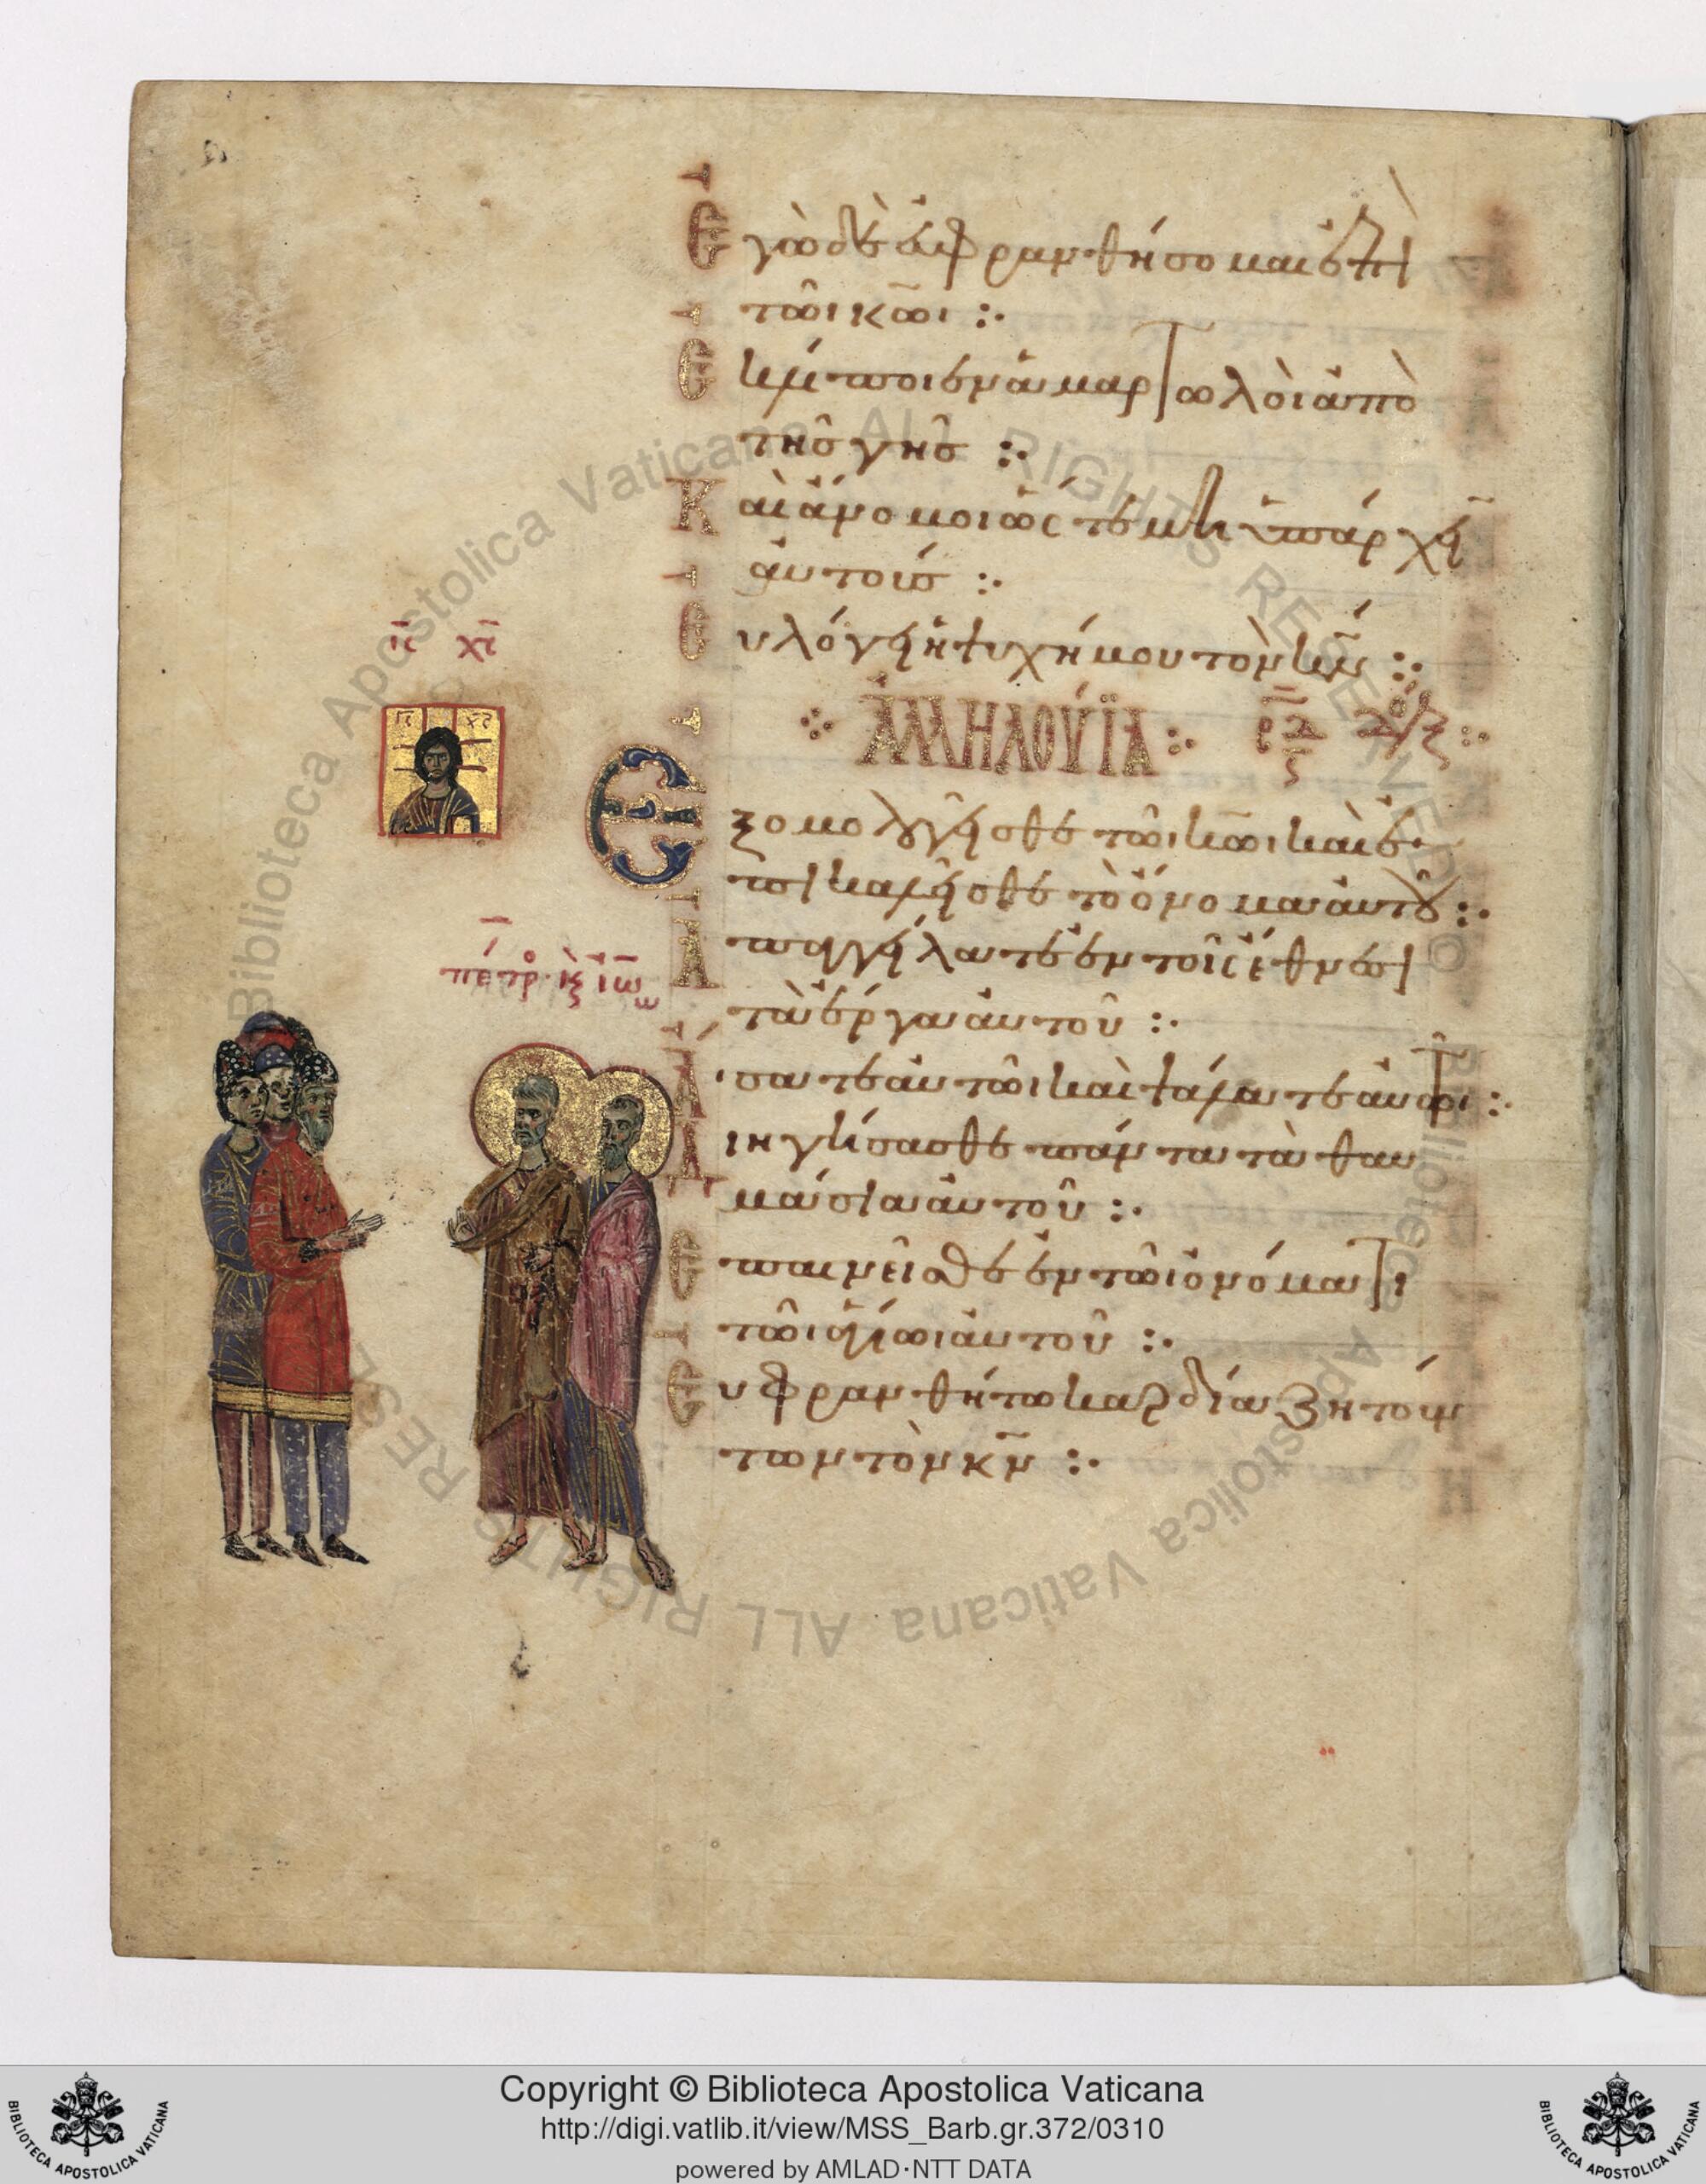 Ἐγὼ δὲ εὐφρανθήσομαι ἐπὶ
τῶι κ̅ωι :·
Ἐκλίποιεν ἁμαρτωλοὶ ἀπὸ
τῆς γῆς :·
Καὶ ἄνομοι ὥστε μὴ ὑπάρχειν
αὐτούς :·
Εὐλόγει ἡ ψυχή μου τὸν κ̅ν :·
ἀλληλούϊα :· ρ̅δ̅
ι̅ς̅ χ̅ς̅
ι̅ς̅ χ̅ς̅
Ἐξομολογεῖσθε τῶι κ̅ωι καὶ ἐ
πικαλεῖσθε τὸ ὄνομα αὐτοῦ :·
πετρ. κ ιω
Ἀπαγγείλατε ἐν τοῖς ἔθνεσι
τὰ ἔργα αὐτοῦ :·
Ἄισατε αὐτῶι καὶ ψάλατε αὐτῶι :·
Διηγήσασθε πάντα τὰ θαυ
μάσια αὐτοῦ :·
Ἐπαινεῖσθε ἐν τῶι ὀνόματι
τῶι ἁγίωι αὐτοῦ :·
Εὐφρανθήτω καρδία ζητούν
των τὸν κ̅ν :·
Biblioteca Apostolica Vaticana ALL RIGHTS RESERVED
Copyright © Biblioteca Apostolica Vaticana
http://digi.vatlib.it/view/MSS_Barb.gr.372/0310
powered by AMLAD·NTT DATA
BIBLIOTECA APOSTOLICA VATICANA
BIBLIOTECA APOSTOLICA VATICANA